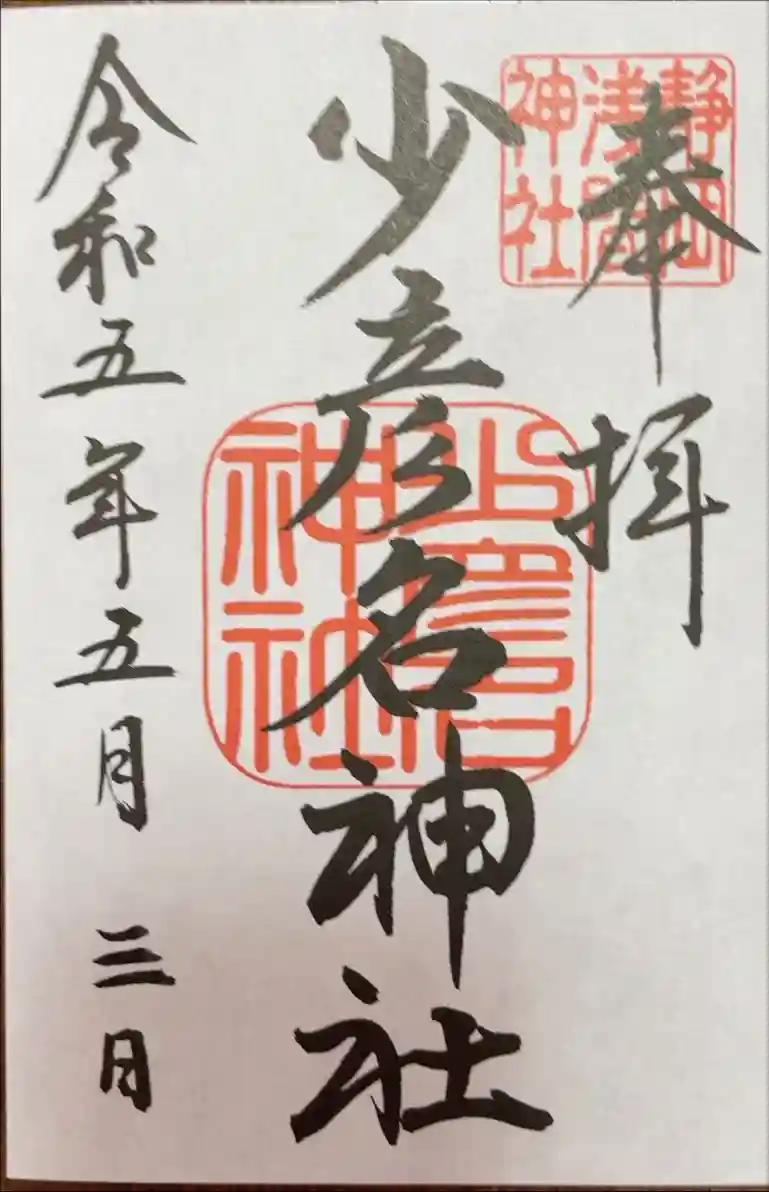 奉拝
静岡
浅間
神社
少彦名神社
少彦名
神社
令和五年五月三日